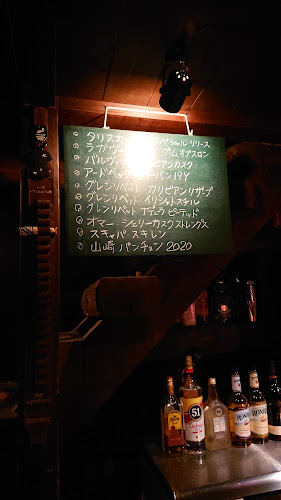 タリスカー スペシャルリリース
ラガヴーリン ゲーム オブ スロン
バルヴェニー カリビアンカスク
アードベッグ トリーバン 19Y
グレンリベット カリビアンリザーブ
グレンリベット イリシットスチル
グレンリベット ピーテッド
オマー シェリーカスクストレングス
スキャパ・スキレン
山崎 パンチョン 2020
51